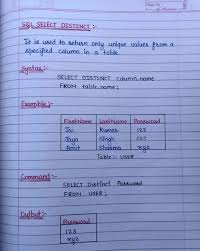 SQL SELECT DISTINCT :-
It is used to return only unique values from a
specified column in a table
Syntax:-
SELECT DISTINCT column name
FROM table_name;
Example:-
FirstName LastName Password
Jai Kumar 123
Jaya Singh 123
Amit Sharma xyz
Table:- USER
Command:-
SELECT Distinct Password
FROM USER;
Output:-
Password
123
xyz